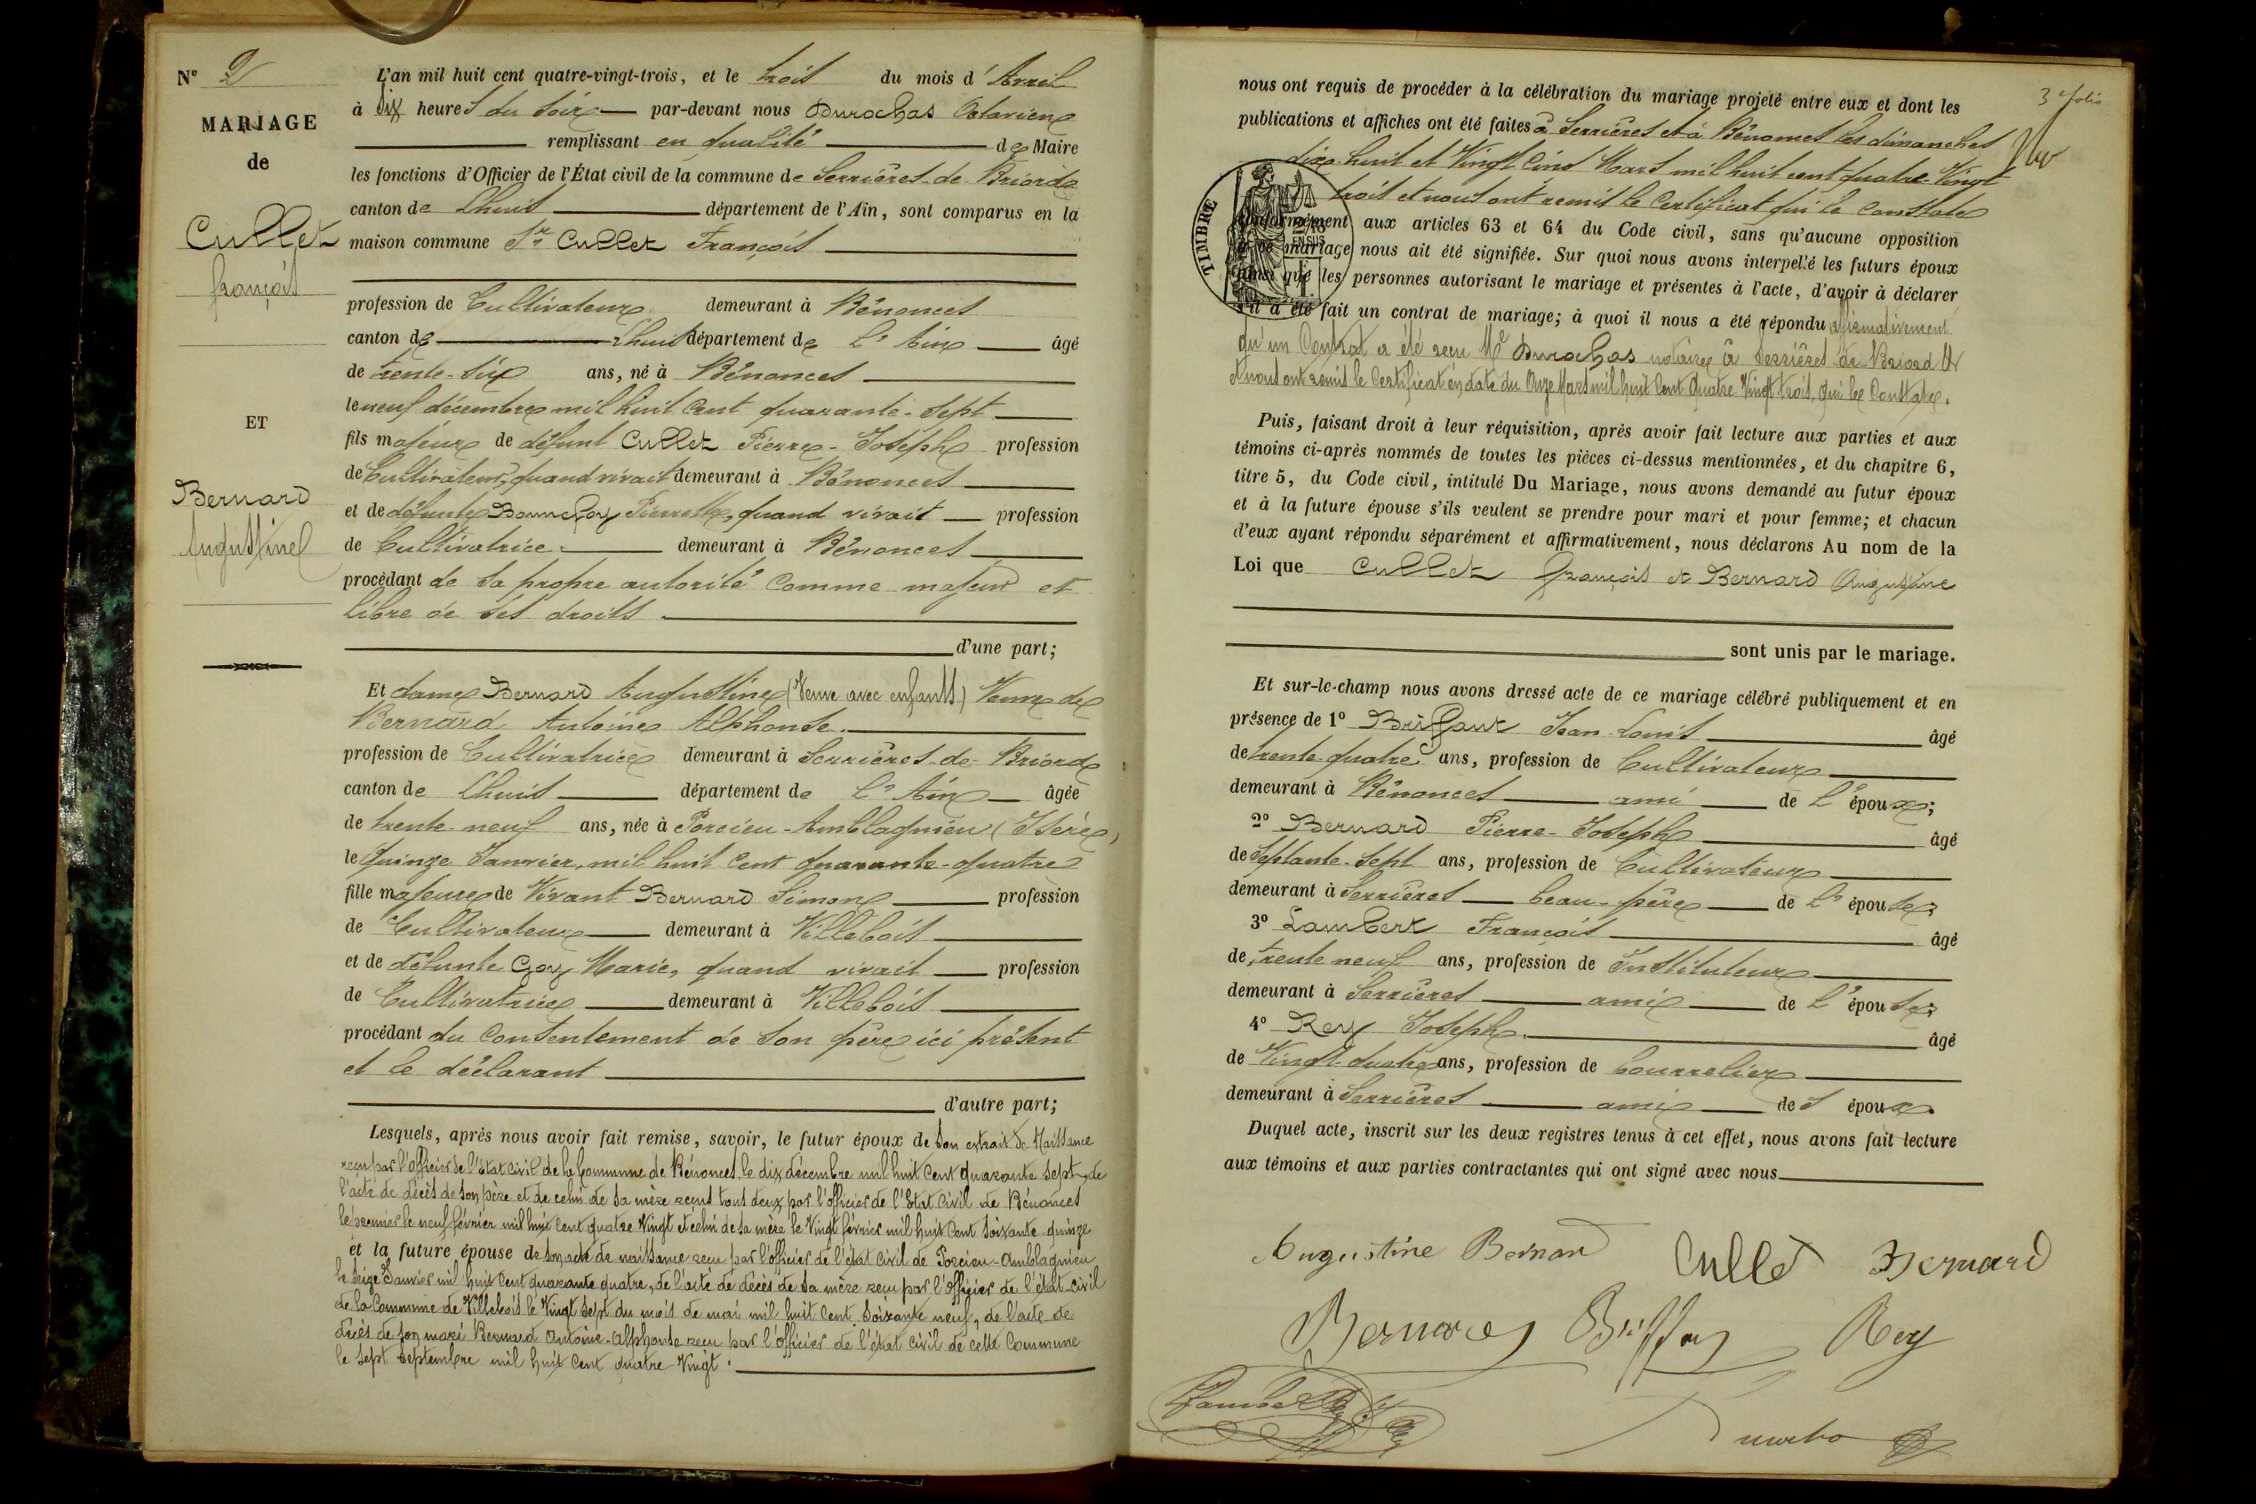 N° 2
MARIAGE
de
Cullet
françois
ET
Bernard
Augustine
L'an mil huit cent quatre-vingt-trois, et le trois du mois d'Avril
à dix heures du soir par-devant nous Durochas Octavien
remplissant en qualité de Maire
les fonctions d'Officier de l'État civil de la commune de Serrières-de-Briord
canton de Lhuis département de l'Ain, sont comparus en la
maison commune Sr Cullet François
profession de Cultivateur demeurant à Bénonces
canton de Lhuis département de L'Ain âgé
de trente-six ans, né à Bénonces
le neuf décembre mil huit cent quarante-sept
fils majeur de défunt Cullet Pierre-Joseph profession
de Cultivateur, quand vivait demeurant à Bénonces
et de défunte Bonnefoy Pierrette, quand vivait profession
de Cultivatrice demeurant à Bénonces
procédant de sa propre autorité comme majeur et
libre de ses droits
d'une part;
Et dame Bernard Augustine (Veuve avec enfants) Veuve de
Bernard Antoine Alphonse.
profession de Cultivatrice demeurant à Serrières-de-Briord
canton de Lhuis département de L'Ain âgée
de trente-neuf ans, née à Porcieu-Amblagnieu (Isère)
le Quinze Janvier, mil huit cent quarante-quatre
fille majeure de Vivant Bernard Simon profession
de Cultivateur demeurant à Villebois
et de défunte Goy Marie, quand vivait profession
de Cultivatrice demeurant à Villebois
procédant du consentement de son père ici présent
et le déclarant
d'autre part;
Lesquels, après nous avoir fait remise, savoir, le futur époux de son extrait de Naissance
reçu par l'officier de l'état civil de la Commune de Bénonces, le dix décembre mil huit cent quarante sept, de
l'acte de décès de son père et de celui de sa mère reçus tous deux par l'officier de l'état civil de Bénonces
le premier le neuf février mil huit cent quatre vingt et celui de sa mère le Vingt février mil huit cent soixante quinze
et la future épouse de son acte de naissance reçu par l'officier de l'état civil de Porcieu-Amblagnieu
le seize Janvier mil huit cent quarante quatre, de l'acte de décès de sa mère reçu par l'officier de l'état-civil
de la Commune de Villebois le Vingt sept du mois de mai mil huit cent soixante neuf, de l'acte de
décès de son mari Bernard Antoine-Alphonse reçu par l'officier de l'état civil de cette Commune
le sept septembre mil huit cent quatre Vingt.
3e folio
nous ont requis de procéder à la célébration du mariage projeté entre eux et dont les
publications et affiches ont été faites à Serrières et à Bénonces les dimanches
dix-huit et Vingt Cinq Mars mil huit cent quatre-Vingt
trois et nous ont remis le certificat qui le constate
conformément aux articles 63 et 64 du Code civil, sans qu'aucune opposition
à ce mariage nous ait été signifiée. Sur quoi nous avons interpellé les futurs époux
ainsi que les personnes autorisant le mariage et présentes à l'acte, d'avoir à déclarer
s'il a été fait un contrat de mariage; à quoi il nous a été répondu affirmativement
qu'un Contrat a été reçu Me Durochas notaire à Serrières de Briord
et nous ont remis le Certificat en date du Onze Mars mil huit Cent Quatre Vingt trois, qui le Constate.
TIMBRE
2/10
EN SUS
Puis, faisant droit à leur réquisition, après avoir fait lecture aux parties et aux
témoins ci-après nommés de toutes les pièces ci-dessus mentionnées, et du chapitre 6,
titre 5, du Code civil, intitulé Du Mariage, nous avons demandé au futur époux
et à la future épouse s'ils veulent se prendre pour mari et pour femme; et chacun
d'eux ayant répondu séparément et affirmativement, nous déclarons Au nom de la
Loi que Cullet françois et Bernard Augustine
sont unis par le mariage.
Et sur-le-champ nous avons dressé acte de ce mariage célébré publiquement et en
présence de 1° Briffaut Jean-Louis âgé
de trente quatre ans, profession de Cultivateur
demeurant à Bénonces ami de L'époux;
2° Bernard Pierre-Joseph âgé
de Septante-Sept ans, profession de Cultivateur
demeurant à Serrières beau-père de L'épouse;
3° Lambert François âgé
de trente neuf ans, profession de Instituteur
demeurant à Serrières ami de L'épouse;
4° Rey Joseph âgé
de Vingt-Quatre ans, profession de bourrelier
demeurant à Serrières ami des époux.
Duquel acte, inscrit sur les deux registres tenus à cet effet, nous avons fait lecture
aux témoins et aux parties contractantes qui ont signé avec nous
Augustine Bernard Cullet Bernard
Bernard Briffaut Rey
Lambert